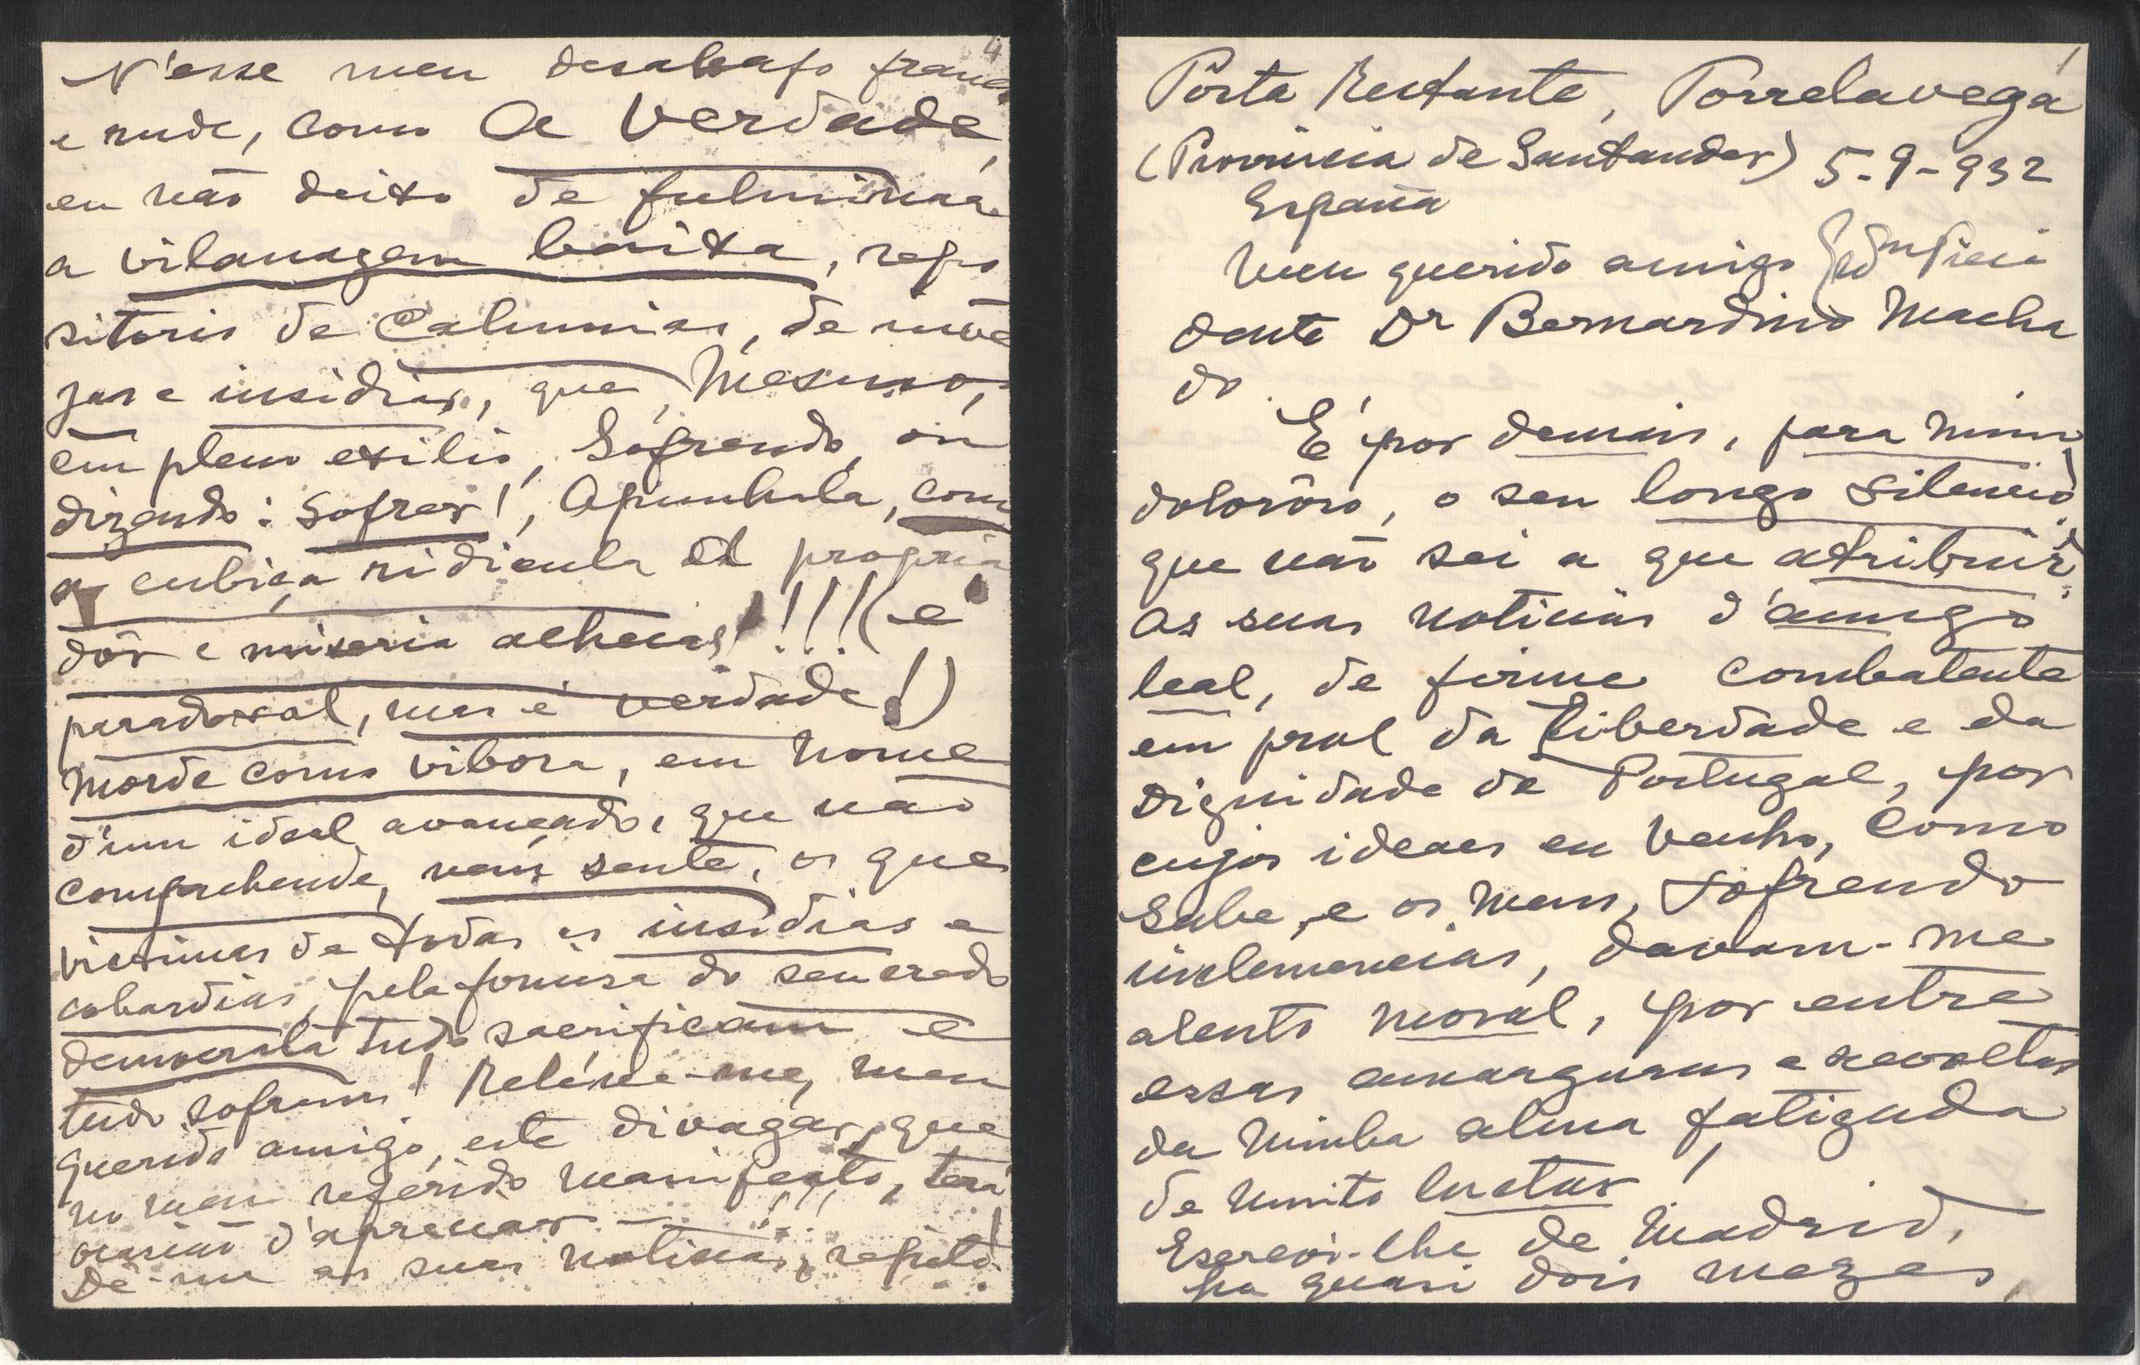 1
Pósta Restante, Torrelavega
(Provincia de Santander) 5-9-932
España
Meu querido amigo
dente Dr Bernardino Macha
do.
É por demais, para mim
dolorôso, o seu longo silencio,
que não sei a que atribuir.
As suas noticias d'amigo
leal, de firme combatente
em prol da Liberdade e da
Dignidade de Portugal, por
cujos ideaes eu venho, como
sabe, e os meus, sofrendo
inclemencias, davam-me
alento moral, por entre
essas amarguras e revoltas
da minha alma fatigada
de muito luctar!
Escrevi-lhe de Madrid,
ha quasi dois mezes,
4
N'esse meu desabafo franco
e rude, como a Verdade,
eu não deixo de fulminar
a vilanagem baixa, repo
sitorio de Calumnias, de inve
jas e insidias, que, Mesmo,
em pleno exilio, Sofrendo, ou
dizendo: Sofrer!, Apunhala, com
a cubiça ridicula a propria
dôr e miseria alheias!!!! (e
paradoxal, mas é verdade!)
Morde como vibora, em Nome
d'um ideal avançado, que não
comprehende, nem sente, os que
victimas de todas as insidias e
cobardias, pela do seu credo
democrata tudo sacrificam e
tudo sofrem! Releve-me, meu
querido amigo, este divagar, que
no meu referido manifesto, terá
ocasião d'apreciar...!!!
Dê-me as suas noticias, repito!